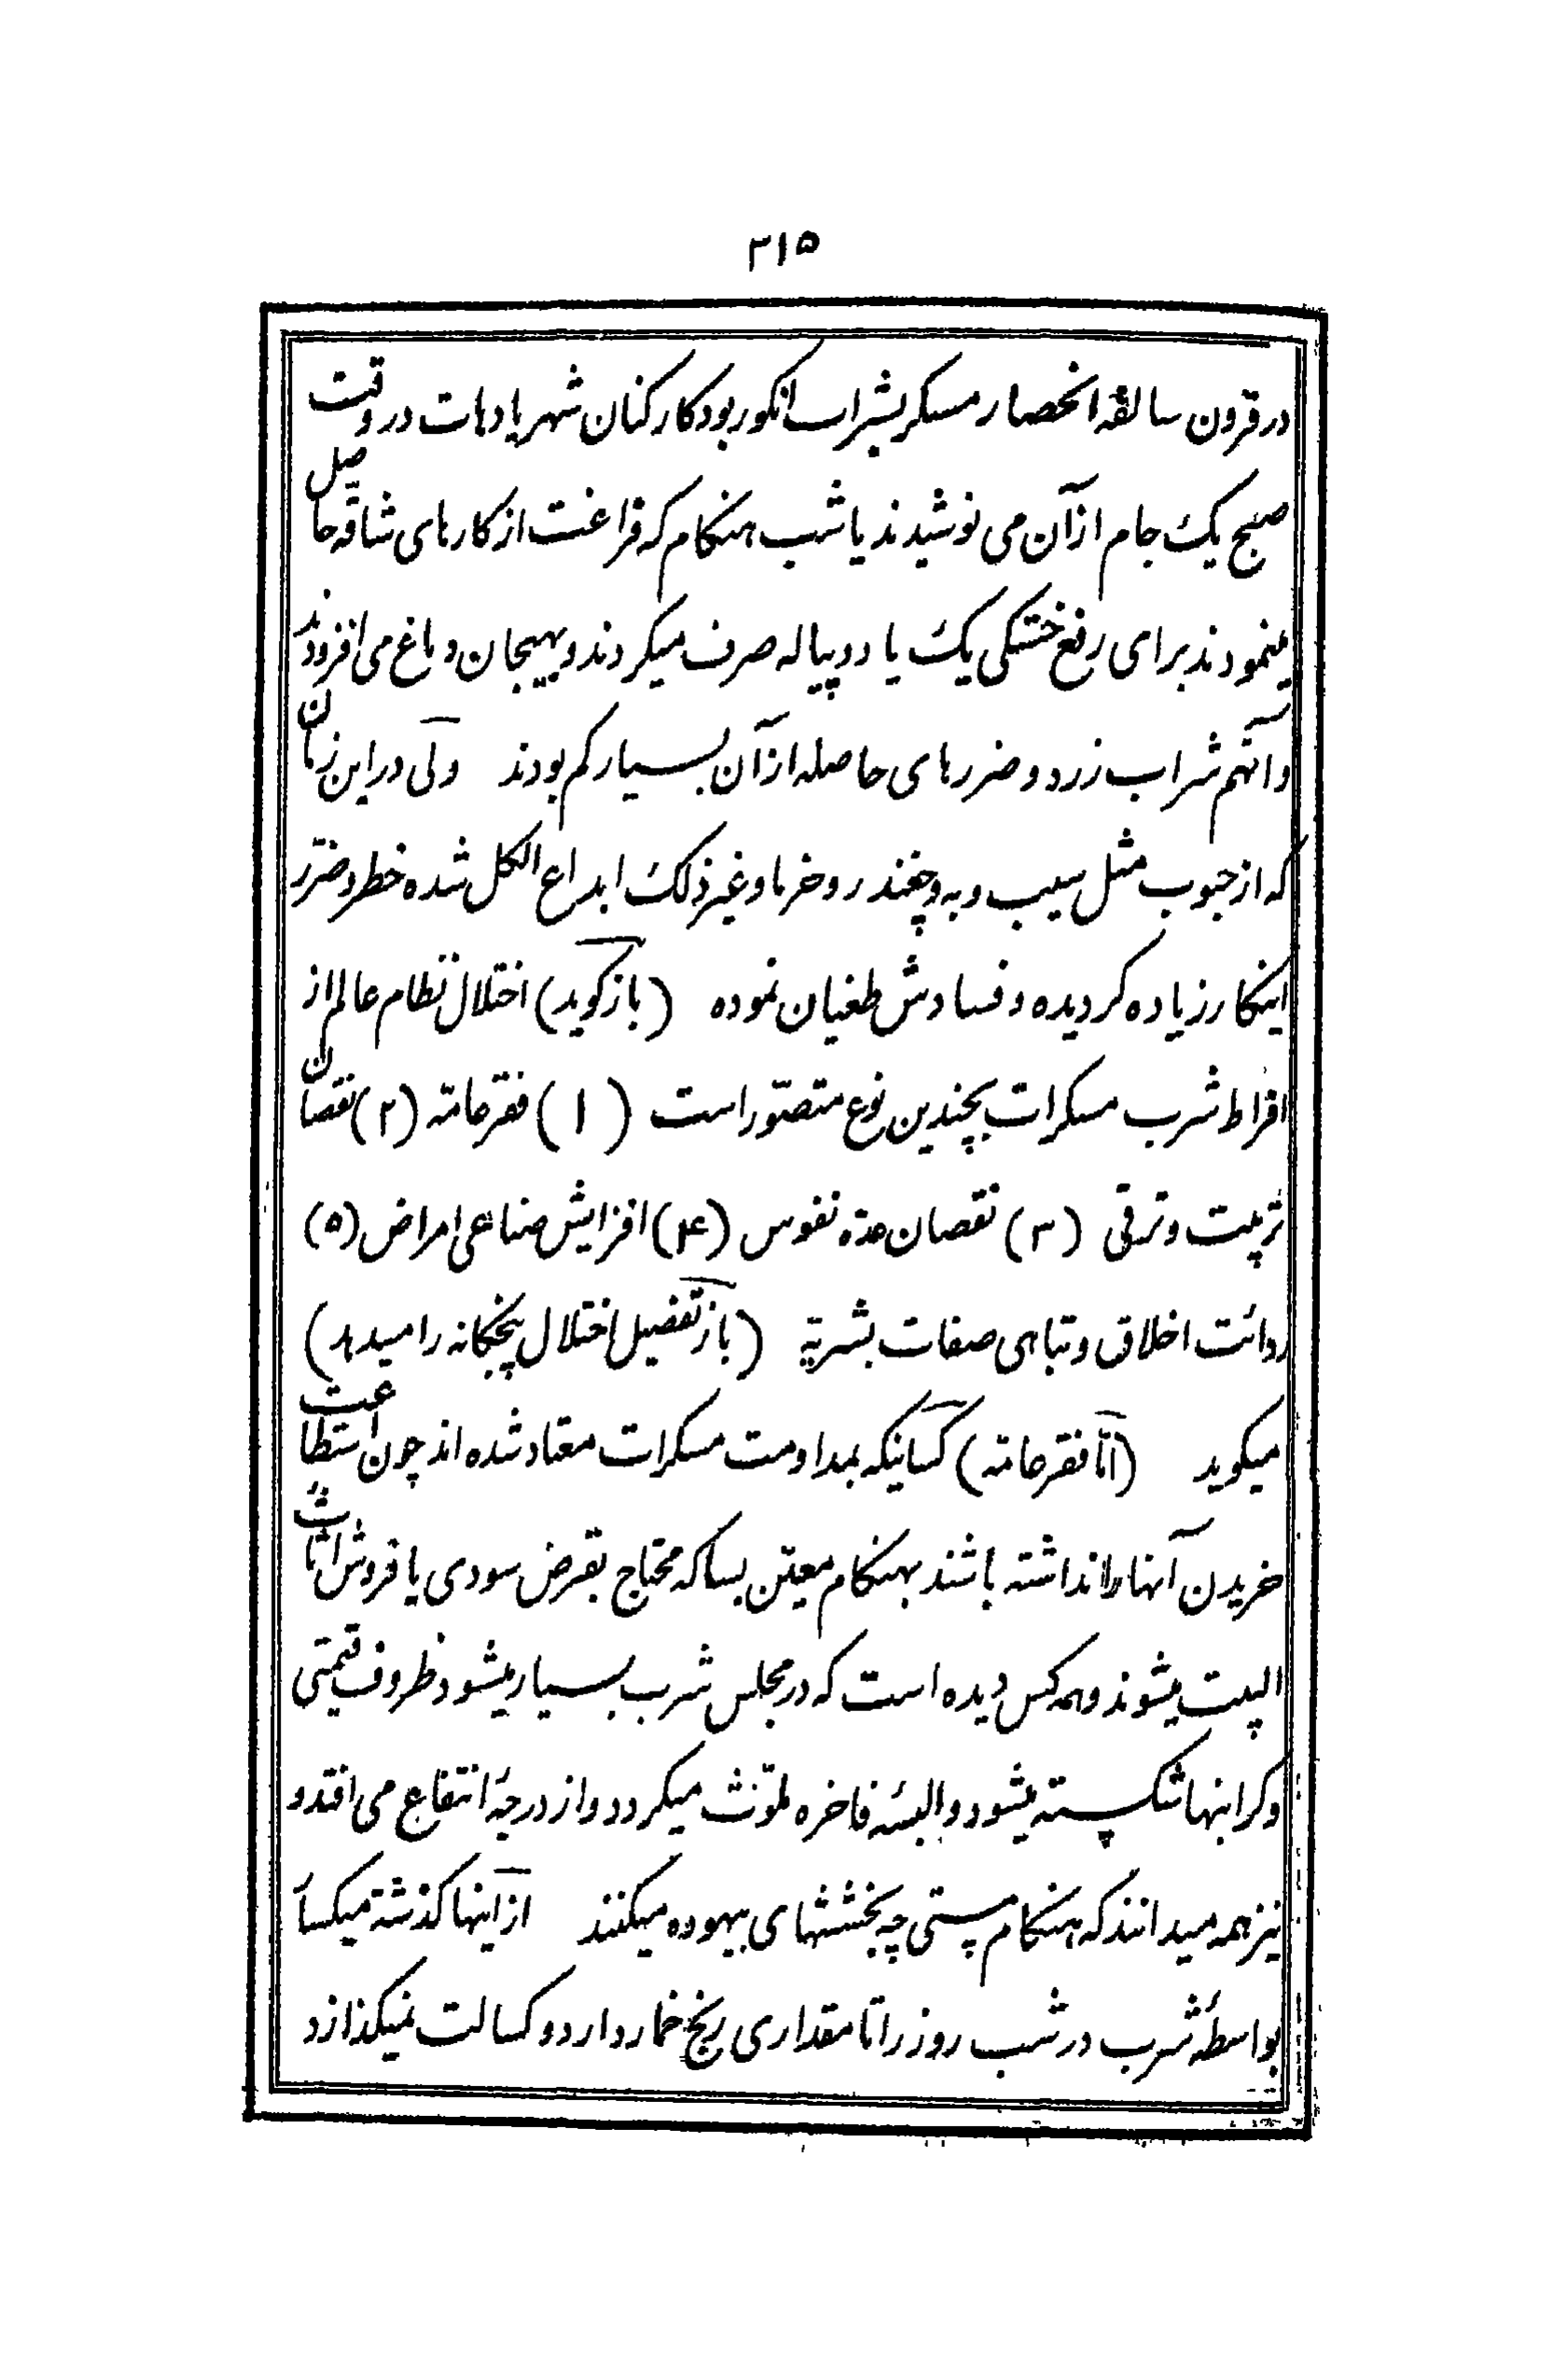 ۳۱۵
در قرون سالفه انحصار مسکر بشراب انکور بود کارکنان شهر یا دهات در وقت
صبح یک جام از آن می نوشیدند یا شب هنکام که فراغت از کارهای شاقّه حاصل
مینمودند برای رفع خستکی یک یا دو پیاله صرف میکردند و بهیجان دماغ می افزودند
و آنهم شراب زرد و ضررهای حاصله از آن بسیار کم بودند ولی در این زمان
که از حبوب مثل سیب و به و چغندر و خرما و غیر ذلک ابداع الکل شده خطر و ضرر
اینکار زیاده کردیده و فسادش طغیان نموده (باز کوید) اختلال نظام عالم از
افراط شرب مسکرات بچندین نوع متصوّر است (۱) فقر عامّه (۲) نقصان
تربیت و ترقی (۳) نقصان عدّه نفوس (۴) افزایش صناعی امراض (۵)
ردائت اخلاق و تباهی صفات بشریّه (باز تفصیل اختلال پنجکانه را میدهد)
میکوید (امّا فقر عامّه) کسانیکه بمداومت مسکرات معتاد شده اند چون استطاعت
خریدن آنها را نداشته باشند بهنکام معیّن بسا که محتاج بقرض سودی یا فروش اثاث
البیت میشوند و همه کس دیده است که در مجلس شرب بسیار میشود ظروف قیمتی
و کرانبها شکسته میشود و البسهٔ فاخره ملوّث میکردد و از درجهٔ انتفاع می افتد و
نیز همه میدانند که هنکام مستی چه بخششهای بیهوده میکنند از اینها کذشته میکسار
بواسطهٔ شرب در شب روز را تا مقداری رنج خمار دارد و کسالت نمیکذارد